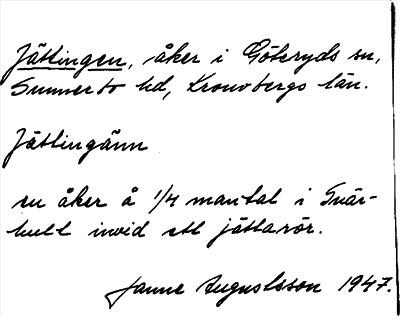 Jättingen, åker i Göteryds sn,
Sunnerbo hd, Kronobergs län.
Jättingänn
en åker å 1/4 mantal i Snär-
hult invid ett jättarör.
Janne Augustsson 1947.